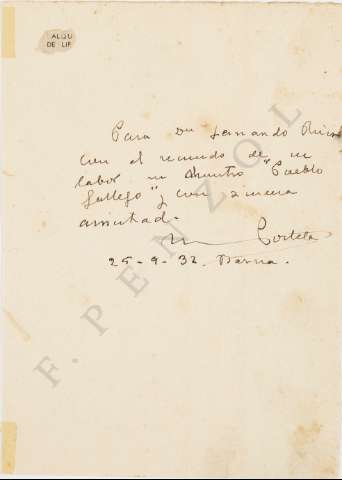 ALQU
DE LIF
Para Dn Fernando
con el recuerdo de su
labor en nuestro "Pueblo
Gallego" y con sincera
amistad.
25-9-32. Barna.
F. PENZOL